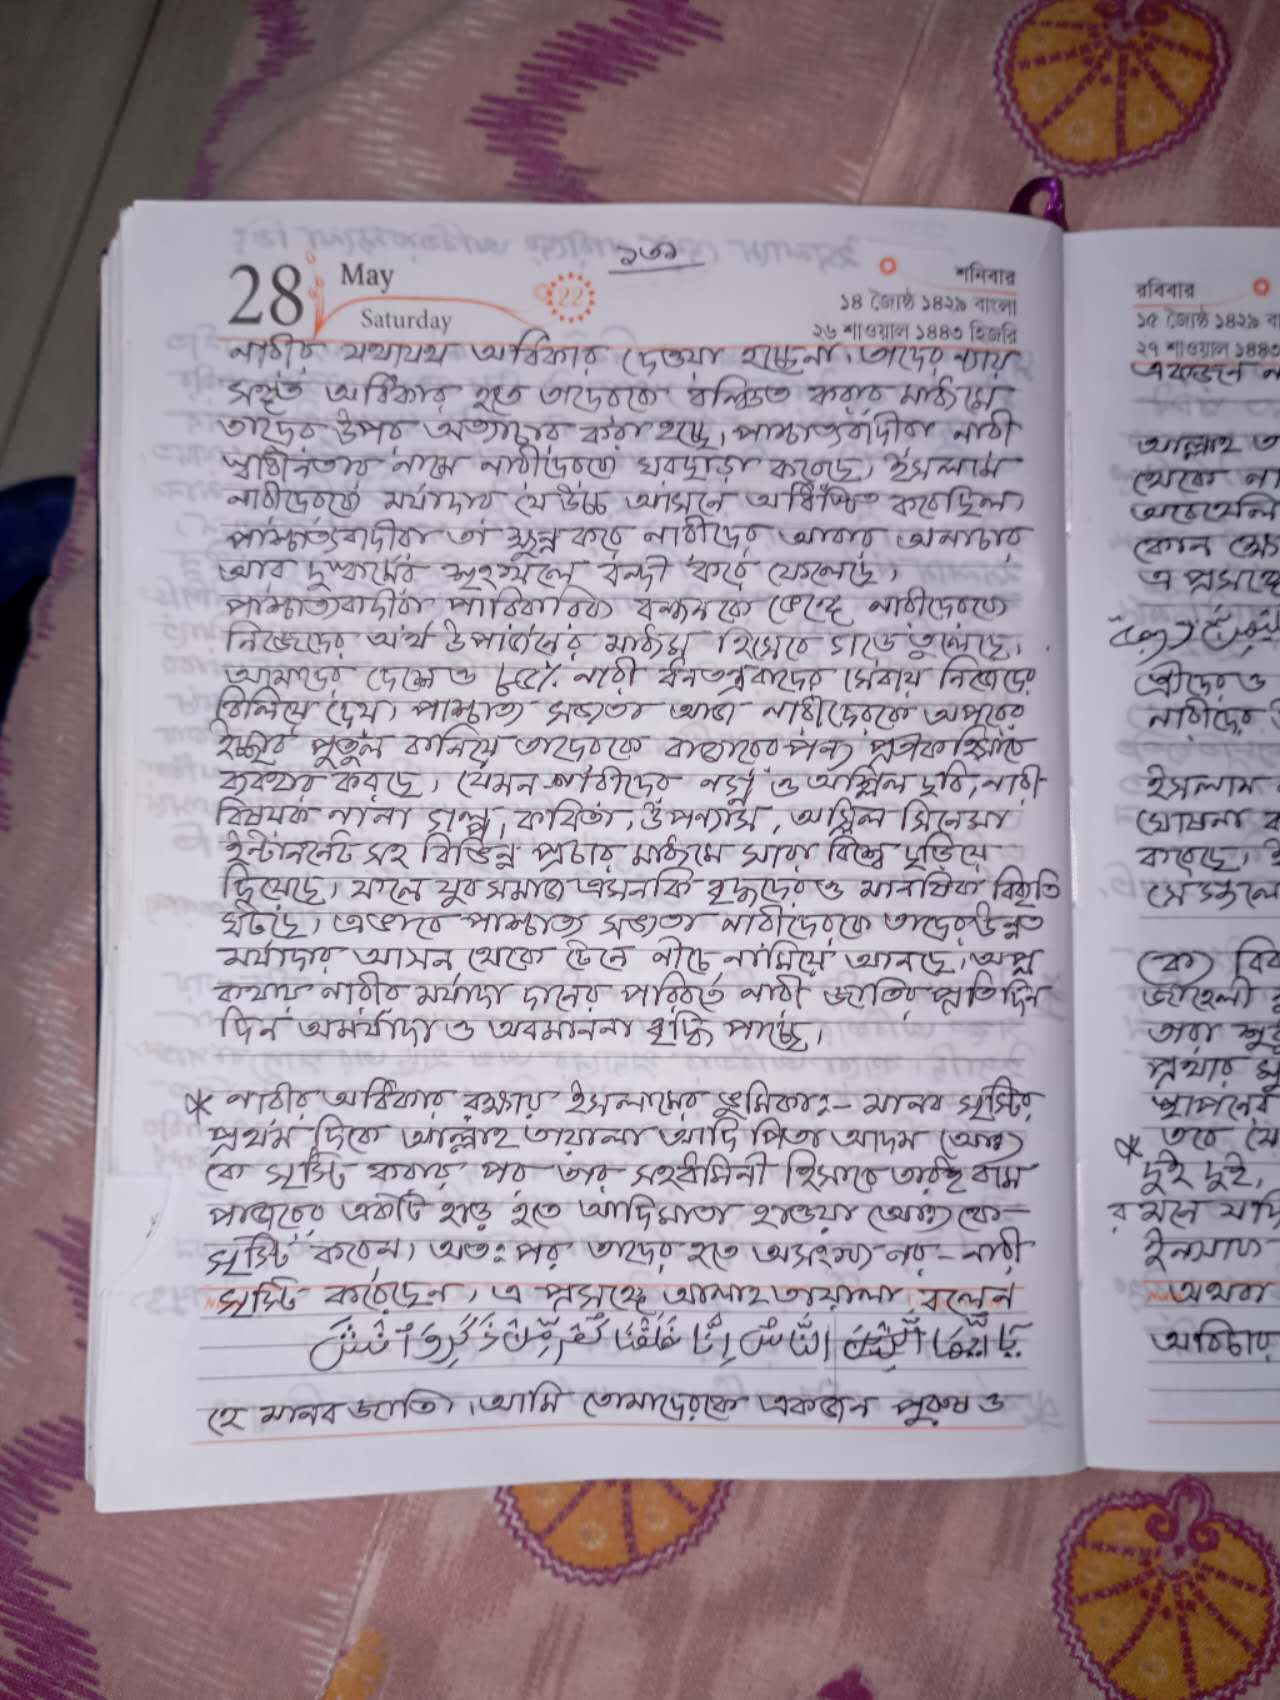 ১৩১
28 May Saturday
22
শনিবার
১৪ জ্যৈষ্ঠ ১৪২৯ বাংলা
২৬ শাওয়াল ১৪৪৩ হিজরি
নারীর যথাযথ অধিকার দেওয়া হচ্ছেনা। তাদের ন্যায়
সঙ্গত অধিকার হতে তাদেরকে বঞ্চিত করার মাধ্যমে
তাদের উপর অত্যাচার করা হচ্ছে। পাশ্চাত্যবাদীরা নারী
স্বাধীনতার নামে নারীদেরকে ঘরছাড়া করেছে। ইসলাম
নারীদেরকে মর্যাদার যে উচ্চ আসনে অধিষ্ঠিত করেছিল।
পাশ্চাত্যবাদীরা তা ক্ষুন্ন করে নারীদের আবার অনাচার
আর দুষ্কর্মের শৃংখলে বন্দী করে ফেলেছে।
পাশ্চাত্যবাদীরা পারিবারিক বন্ধনকে ভেঙ্গে নারীদেরকে
নিজেদের অর্থ উপার্জনের মাধ্যম হিসেবে গড়ে তুলেছে।
আমাদের দেশেও ৮৫% নারী ধনতন্ত্রবাদের সেবায় নিজেদের
বিলিয়ে দেয়। পাশ্চাত্য সভ্যতা আজ নারীদেরকে অপরের
ইচ্ছার পুতুল বানিয়ে তাদেরকে বাজারের পন্য প্রতীক হিসাবে
ব্যবহার করছে। যেমন নারীদের নগ্ন ও অশ্লিল ছবি, নারী
বিষয়ক নানা গল্প, কবিতা, উপন্যাস, অশ্লিল সিনেমা
ইন্টারনেট সহ বিভিন্ন প্রচার মাধ্যমে সারা বিশ্বে ছড়িয়ে
দিয়েছে। ফলে যুবসমাজ এমনকি বৃদ্ধদেরও মানষিক বিকৃতি
ঘটছে। এভাবে পাশ্চাত্য সভ্যতা নারীদেরকে তাদের উন্নত
মর্যাদার আসন থেকে টেনে নীচে নামিয়ে আনছে। অল্প
কথায় নারীর মর্যাদা দানের পরিবর্তে নারী জাতির প্রতিদিন
দিন অমর্যাদা ও অবমাননা বৃদ্ধি পাচ্ছে।
* নারীর অধিকার রক্ষায় ইসলামের ভূমিকাঃ- মানব সৃষ্টির
প্রথম দিকে আল্লাহ তায়ালা আদি পিতা আদম (আঃ)
কে সৃষ্টি করার পর তার সহধর্মিনী হিসাবে তারই বাম
পাজরের একটি হাড় হতে আদিমাতা হাওয়া (আঃ) কে-
সৃষ্টি করেন। অতঃপর তাদের হতে অসংখ্য নর-নারী
সৃষ্টি করেছেন। এ প্রসঙ্গে আলাহ তায়ালা বলেন
হে মানব জাতি। আমি তোমাদেরকে একজন পুরুষ ও
রবিবার
১৫ জ্যৈষ্ঠ ১৪২৯ বা
২৭ শাওয়াল ১৪৪৩
একজন ন
আল্লাহ ত
থেকে না
কোন ক্ষে
এ প্রসঙ্গে
স্ত্রীদেরও
নারীদের
ইসলাম
ঘোষনা ক
করেছে।
সেগুলো
(ক) বিব
জাহেলী
তারা শু
প্রথার
স্থাপনের
* তবে যে
দুই দুই,
র মনে যদি
ইনসাফ
অথবা
অবিচার